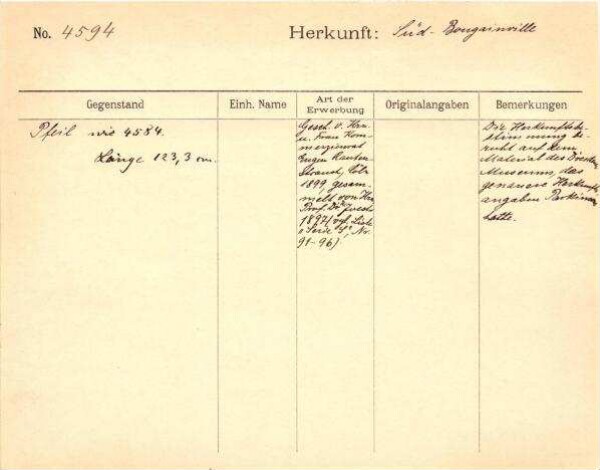 No. 4594 Herkunft: Süd-Bougainville
Gegenstand Einh. Name Art der Erwerbung Originalangaben Bemerkungen
Pfeil wie 4584.
Länge 123,3 cm.
Gesch. v. Hrn
u. Frau Kom
merzienrat
Eugen Rauten
strauch, Cöln
1899, gesam
melt von Hrn
Prof. Dr. Joest
1897 (vgl. Liste
Seite Nr.
91-96)
Die Herkunftsbe
stimmung be
ruht auf dem
Material des Dresden
Museums, das
genauere Herkunfts
angaben Parkinson
hatte.